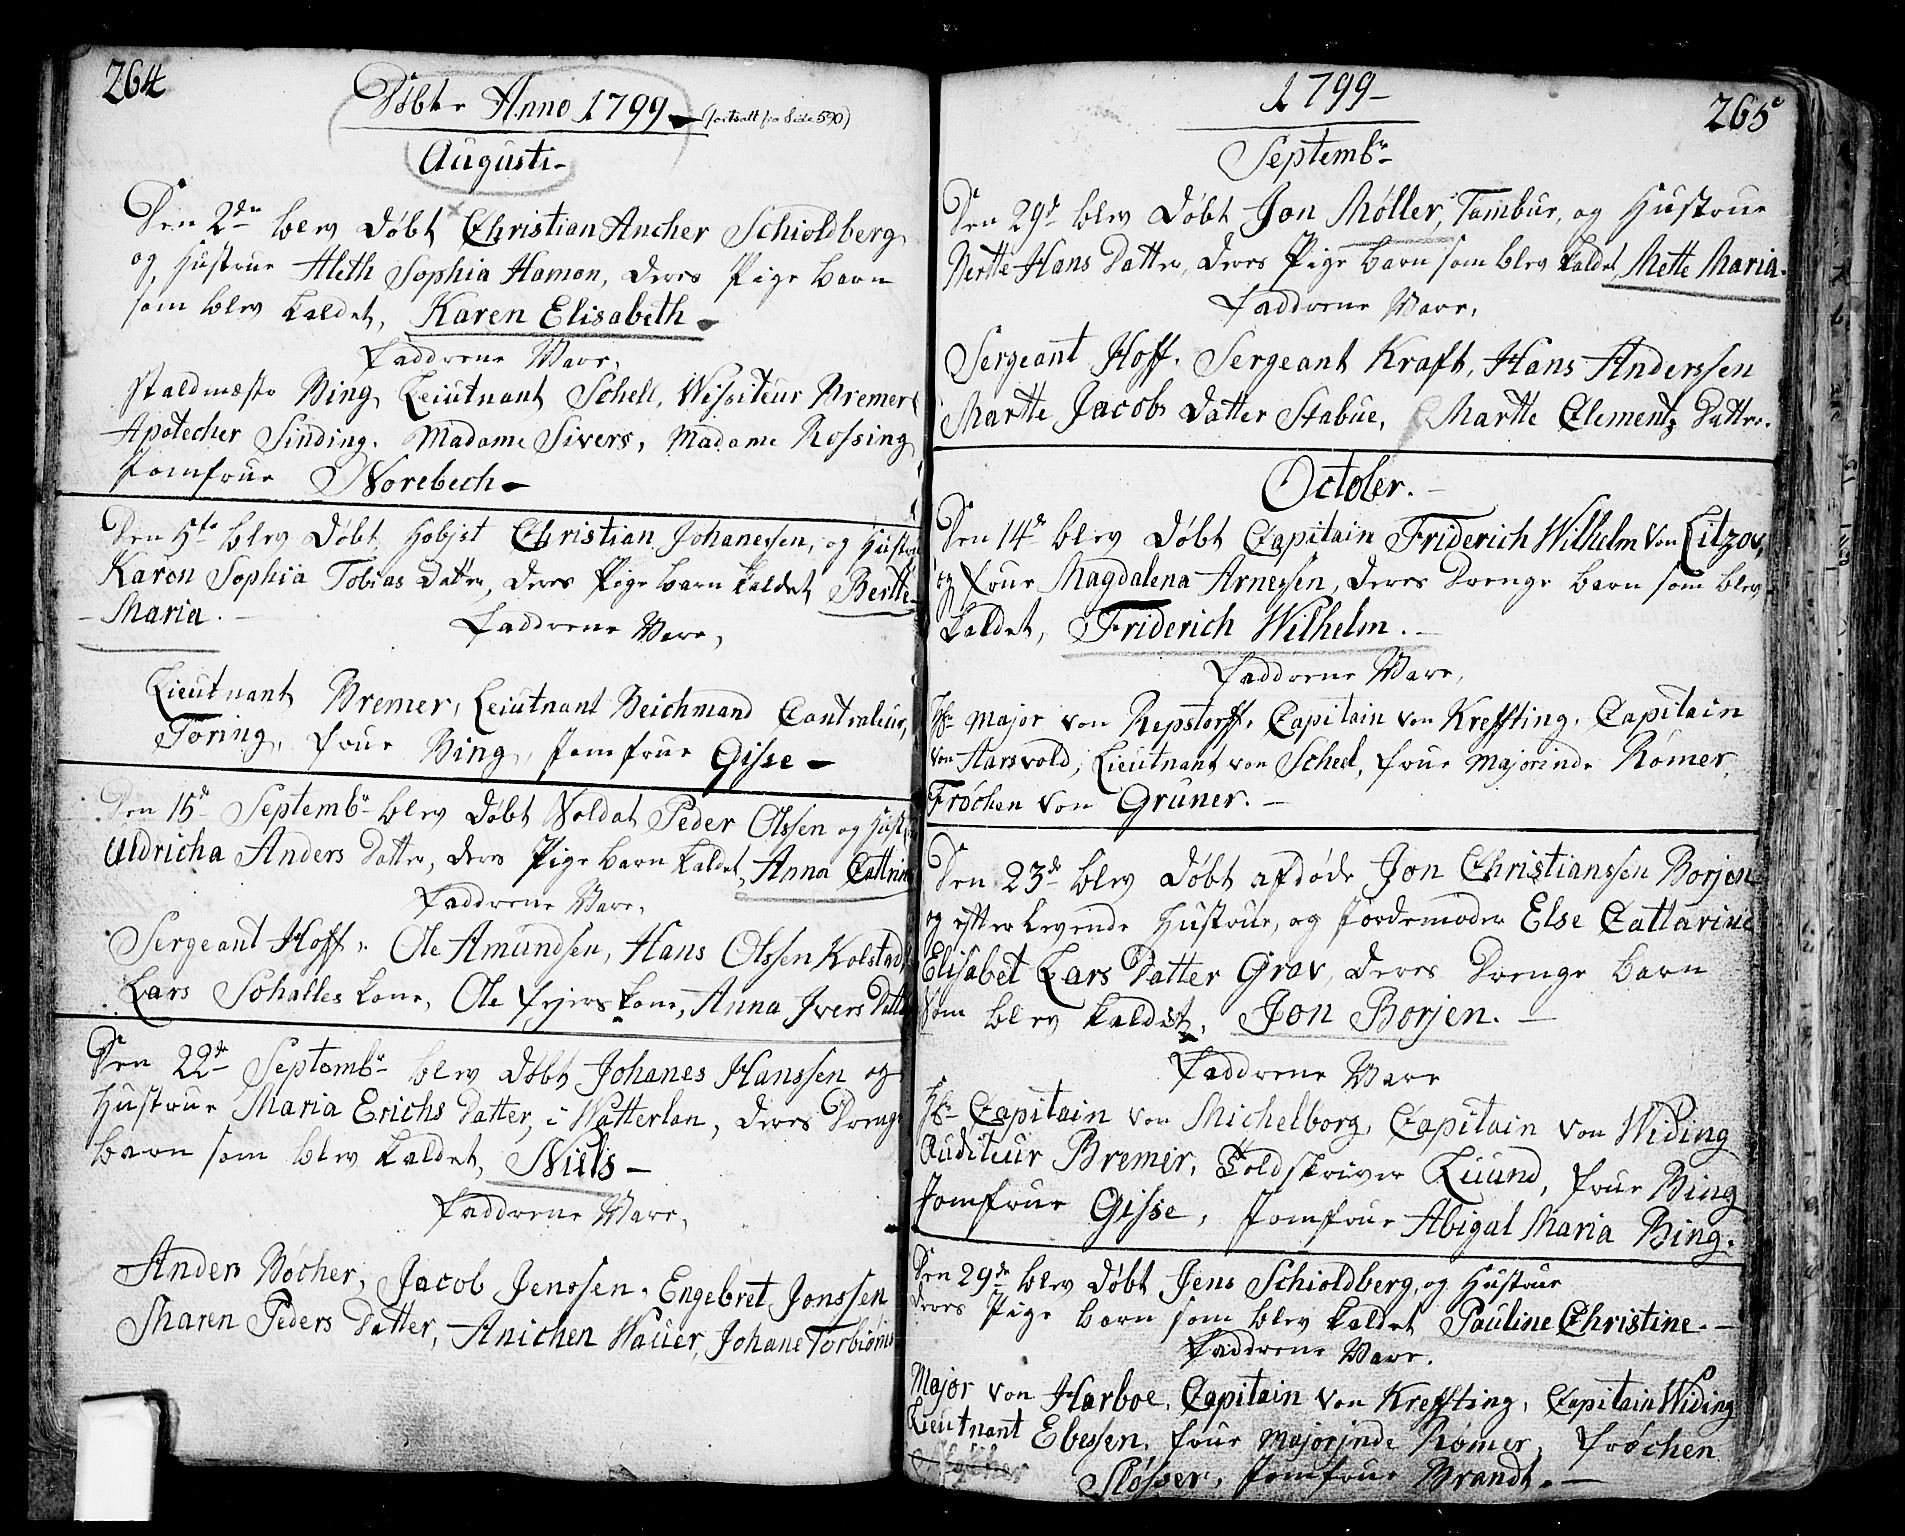 264
Døbte Anno 1799 (fortsatt fra Side 590)
Augusti
Den 2den blev Døbt Christian Ancher Schioldberg
og Hustrue Aleth Sophia Hamon, deres Pige barn
som blev kaldet, Karen Elisabeth
Faddrene Vare,
Staldmester Bing, Leiutnant Schell, Vissiteur Bremer
Apotecher Sinding. Madame Sivers, Madame Rossing
Jomfrue Norebech
Den 5te blev Døbt Hobjst Christian Johanessen, og Hustrue
Karen Sophia Tobias Datter, deres Pige barn kaldet Berthe
Maria.
Faddrene Vare,
Lieutnant Bremer, Leiutnant Beichmand Contraleur,
Toring, frue Bing, Jomfrue Gisse
Den 15de Septembr blev Døbt Soldat Peder Olssen og Hust
Uldricha Anders Datter, deres Pige barn kaldet, Anna Cattrin
Faddrene Vare,
Sergeant Hoff. Ole Amundsen, Hans Olssen Kolstad,
Lars Schalles kone, Ole kone, Anna Jvers Datter
Den 22de Septembr blev Døbt Johanes Hanssen og
Hustrue Maria Erichs Datter, i Watterlan, deres Drenge
barn som blev kaldet, Niels
Faddrene Vare,
Anders Bøcher, Jacob Jenssen, Engebret Jonssen
Maren Peders Datter, Anichen Wauer, Johane Torbiørns
1799
265
Septembr
Den 29de blev Døbt Jon Møller, Tambur, og Hustrue
Berthe Hans Datter, deres Pige barn som blev kaldet, Mette Maria.
Faddrene Vare,
Sergeant Hoff. Sergeant Kraft, Hans Anderssen
Marthe Jacobs Datter Stabue, Marthe Clementz Datter.
October.
Den 14de blev Døbt Capitain Friderich Wilhelm von Litzov,
og frue Magdalena Arnessen, deres Drenge barn som blev
kaldet, Friderich Wilhelm.
Faddrene Vare,
Hr Major von Repstorff, Capitain von Kreffting, Capitain
von Harsvold, Lieutnant von Scheel, frue Majorinde Rømer,
Frøchen von Gruner.
Den 23de blev Døbt afdøde Jon Christianssen Borjen
og efterlevende Hustrue, og Jordemoder Else Cattarine
Elisabet Lars Datter Grav, deres Drenge barn
som blev kaldet, Jon Borjen.
Faddrene Vare
Hr Capitain von Michelborg, Capitain von Widing
Auditeur Bremer, Toldskriver Luund, frue Bing
Jomfrue Gisse, Jomfrue Abigal Maria Bing.
Den 29de blev Døbt Jens Schioldberg, og Hustrue
deres Pige barn som blev kaldet Pauline Christine.
Faddrene Vare.
Major von Harboe, Capitain von Kreffting, Capitain Widing
Lieutnant Ebessen, frue Majorjnde Rømer, frøchen
Sløsser, Jomfrue Brandt.